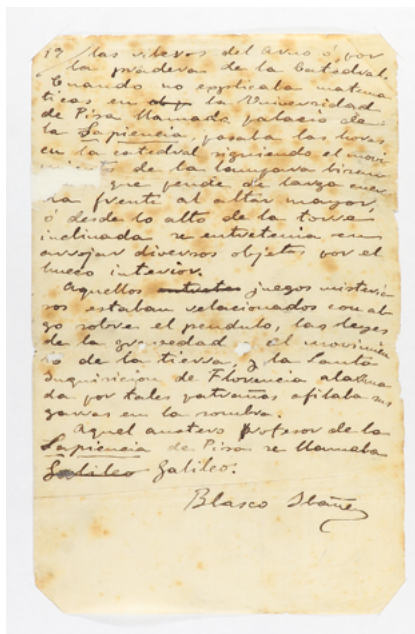 19 las riberas del Arno ó por
la pradera de la Catedral.
Cuando no explicaba matema
ticas en la Universidad
de Pisa llamada palacio de
la Sapiencia, pasaba las horas
en la catedral siguiendo el movi
de la lampara
que pende de larga cuer
da frente al altar mayor,
ó desde lo alto de la torre
inclinada se entretenia en
arrojar diversos objetos por el
hueco interior.
Aquellos juegos misterio
sos estaban relacionados con al
go sobre el pendulo, las leyes
de la gravedad el movimien
to de la tierra, y la Santa
Inquisicion de Florencia alarma
da por tales patrañas afilaba sus
garras en la sombra.
Aquel austero profesor de la
Sapiencia de Pisa se llamaba
Galileo Galileo.
Blasco Ibáñez